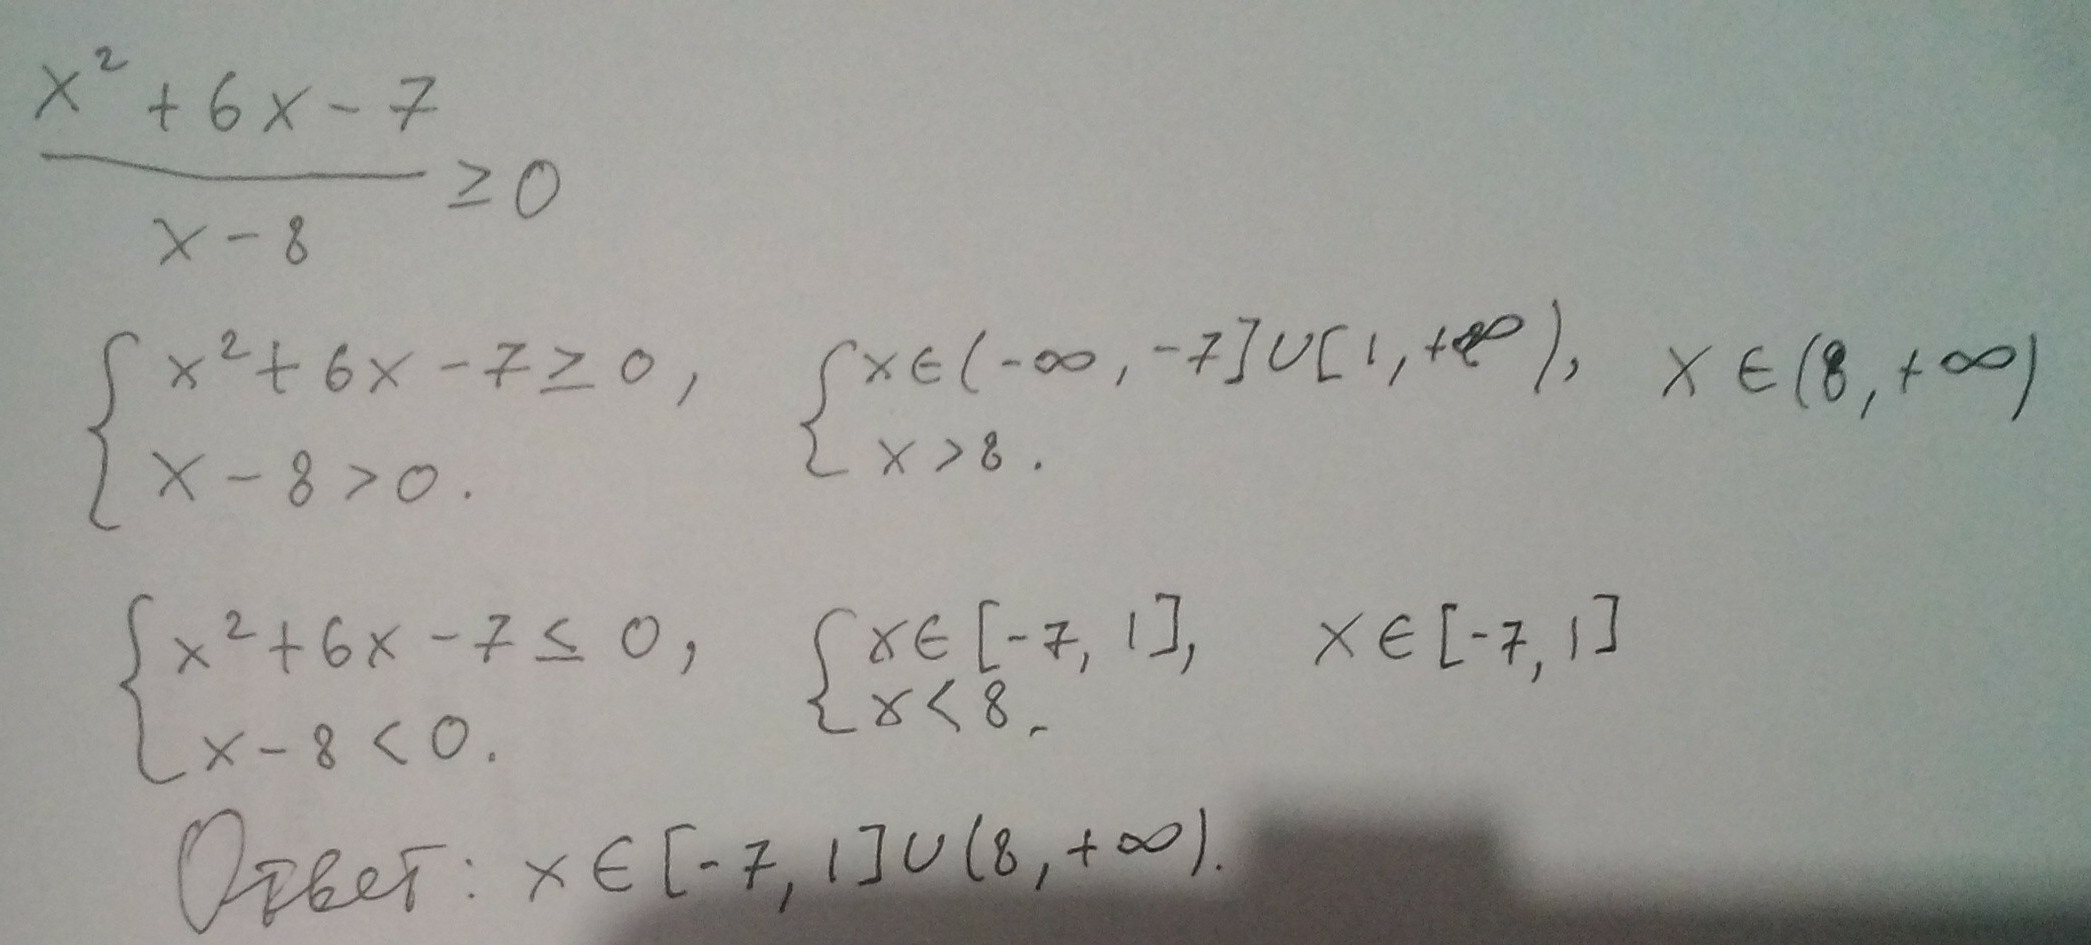 x² + 6x - 7
x - 8
≥ 0
{ x² + 6x - 7 ≥ 0, { x ∈ (-∞, -7] ∪ [1, +∞), x ∈ (8, +∞)
x - 8 > 0. x > 8.
{ x² + 6x - 7 ≤ 0, { x ∈ [-7, 1], x ∈ [-7, 1]
x - 8 < 0. x < 8.
Ответ: x ∈ [-7, 1] ∪ (8, +∞).